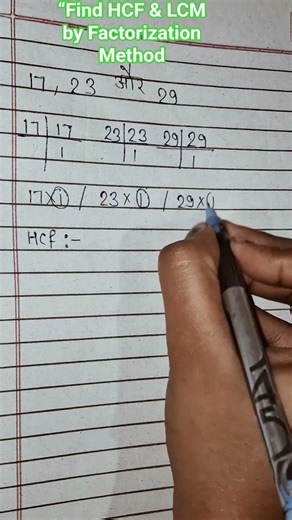 “Find HCF & LCM
by Factorization
Method
17, 23 और 29
17 | 17 23 | 23 29 | 29
1 1 1
17×1 / 23×1 / 29×1
HCF :-